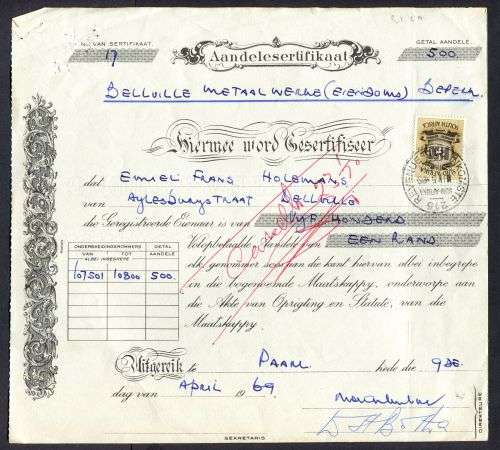 No. VAN SERTIFIKAAT
17
Aandelesertifikaat
GETAL AANDELE
500
BELLVILLE METAALWERKE (EIENDOMS) BEPERK.
Hiermee word Gesertifiseer
dat EMIEL FRANS HOLEMANS
van AYLESBURYSTRAAT BELLVILLE
die Geregistreerde Eienaar is van VYF HONDERD
Volopbetaalde Aandele van EEN RAND
elk genommer soos aan die kant hiervan albei inbegrepe
in die bogenoemde Maatskappy, onderworpe aan
die Akte van Oprigting en Statute, van die
Maatskappy
ONDERSKEIDINGSNOMMERS
VAN TOT
ALBEI INBEGREPE
GETAL AANDELE
107501 10800 500.
Cancelled
Uitgereik te PAARL hede die 9DE
dag van APRIL 1969
DIREKTEURE
SEKRETARIS